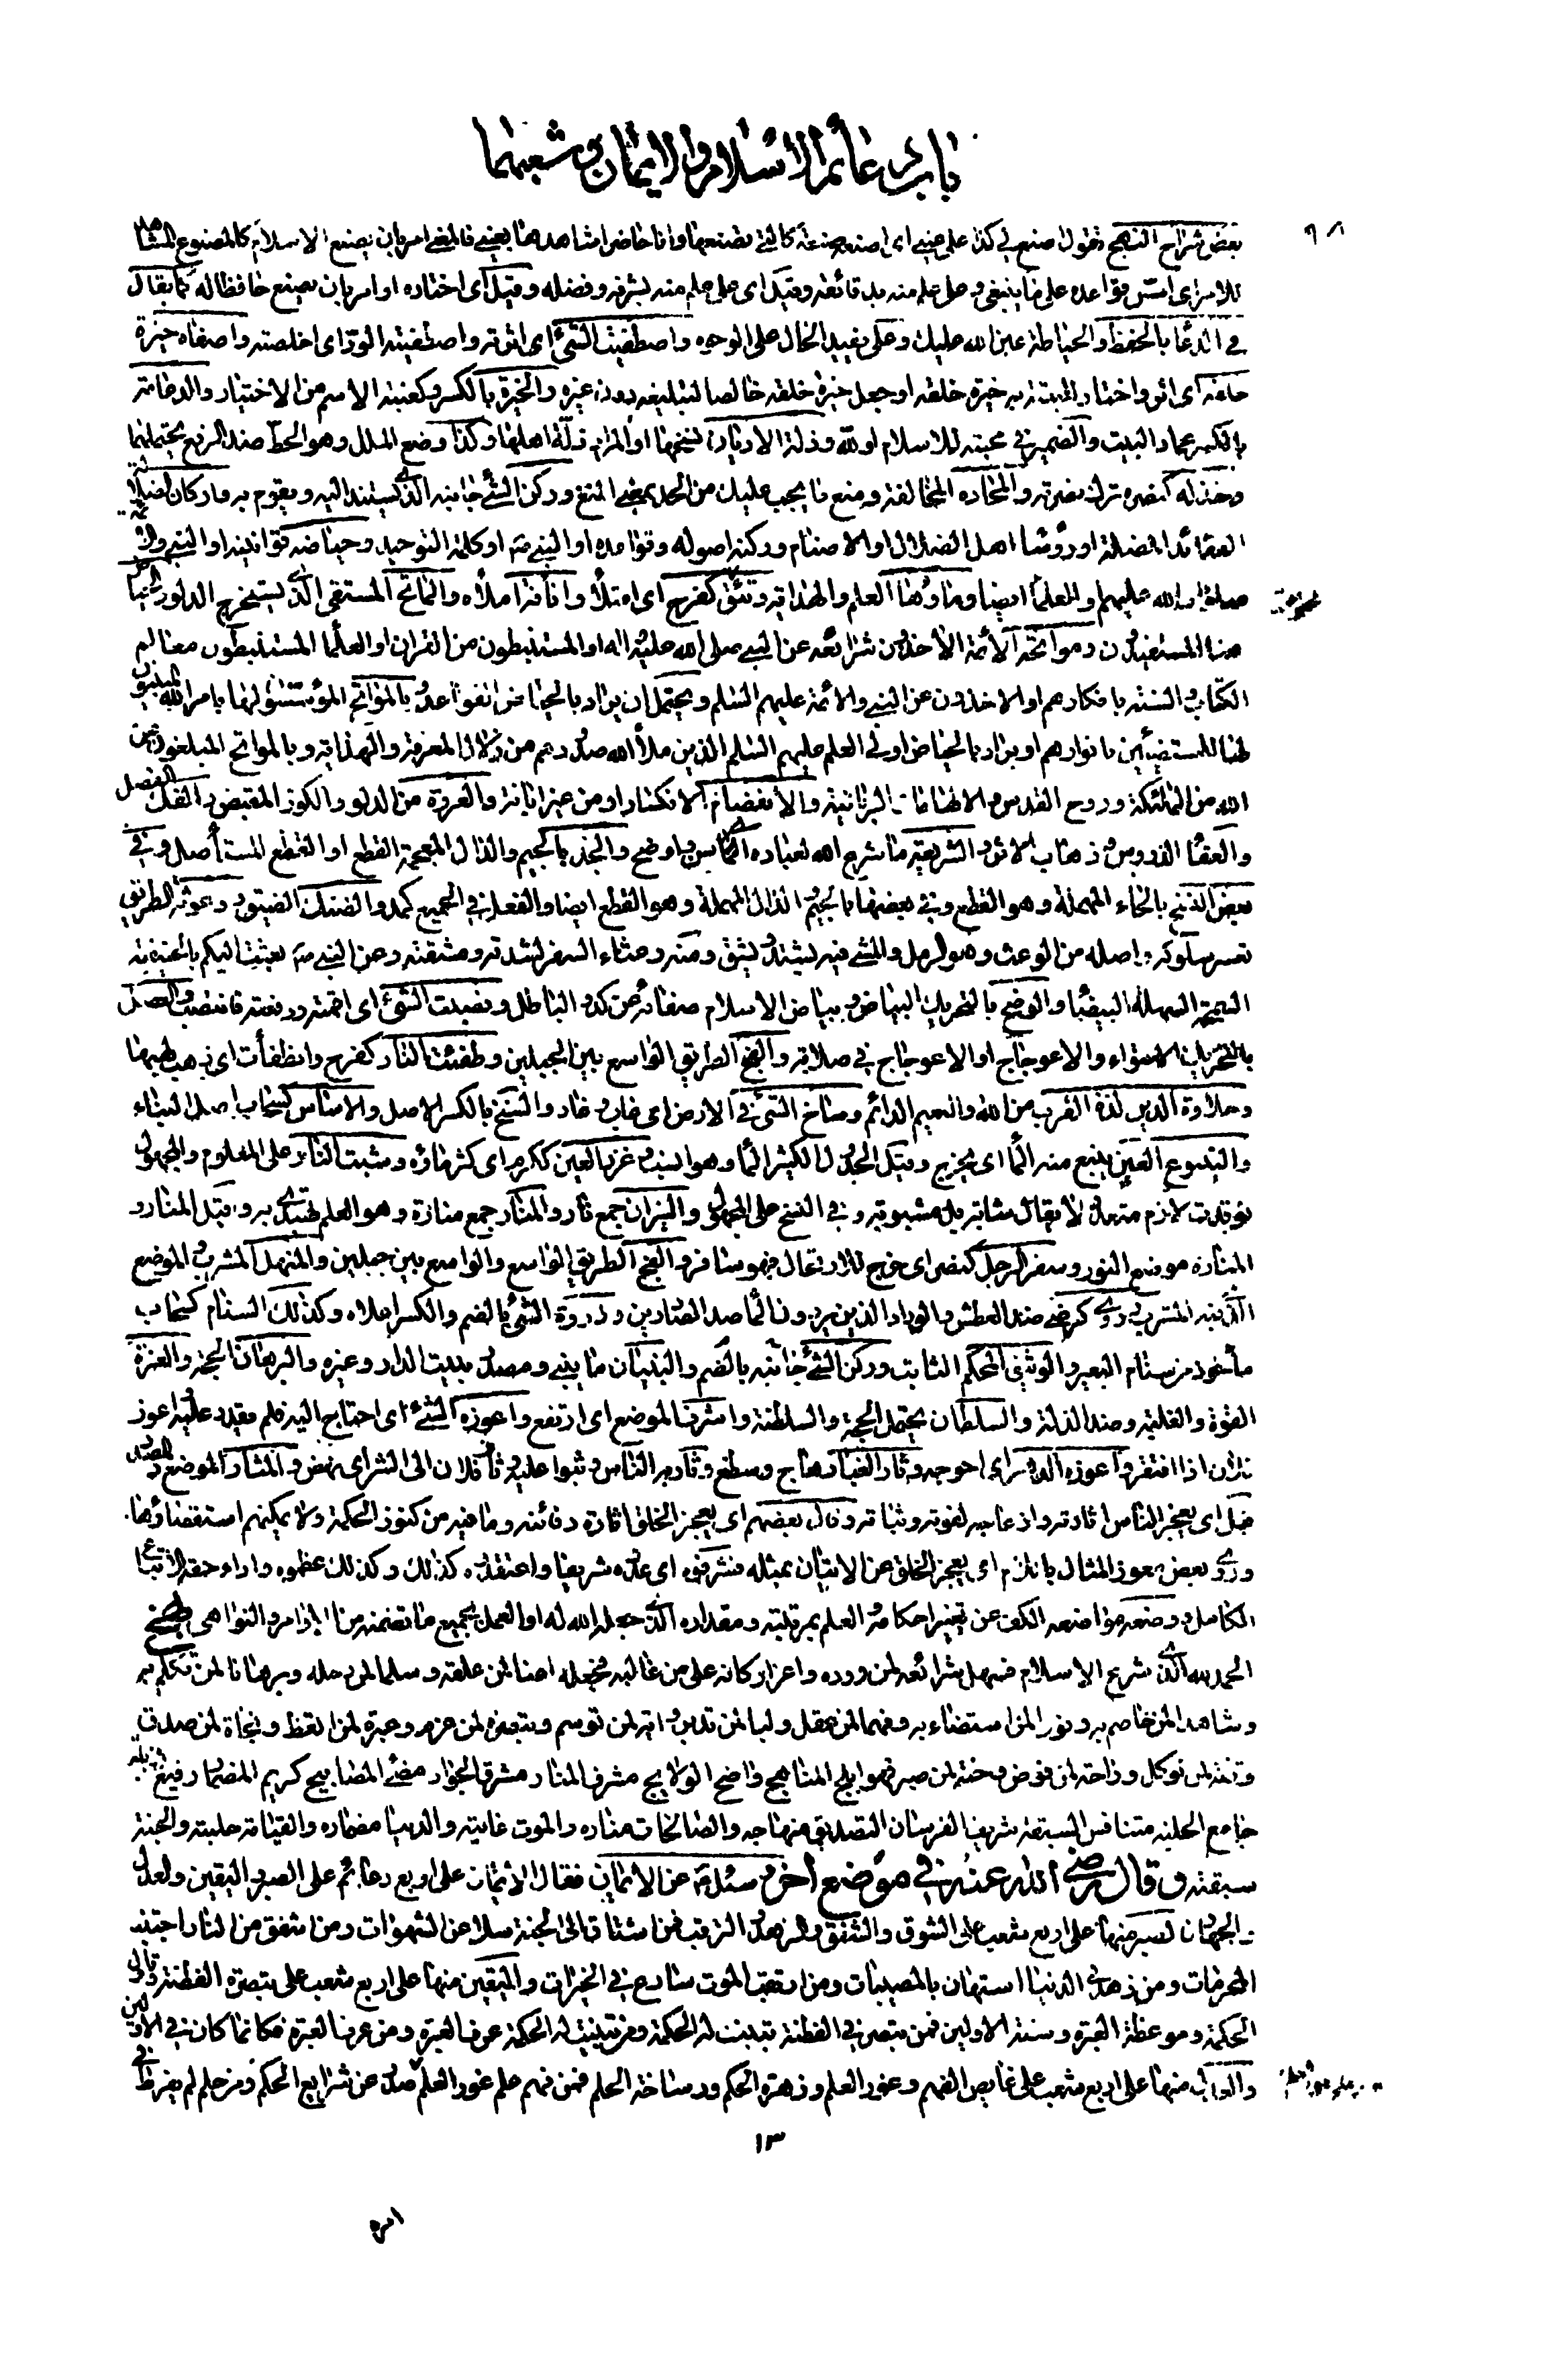 باب دعائم الاسلام والايمان وشعبهما
٩٨
بعض شراح النهج تقول اصنع لي كذا على عيني اي اصنعه صنعة كالتي تصنعها وانا حاضر اشاهدها بعيني فالمعنى امر بان يصنع الاسلام كالمصنوع المشاهد
للامر اي اسس قواعده على ما ينبغي وعلى علم منه بدقائقه وقيل اي على علم منه بشرفه وفضله وقيل اي اختاره او امر بان يصنع حافظا له كما يقال
في الدعاء بالحفظ والحياطة عين الله عليك وعلى يفيد الحال على الوجوه واصطفيت الشئ اي اثرته واصطفيته الود اي اخلصته واصفاه خيرة
خلقه اي اثر واختار للبعثة به خيرة خلقه او جعل خيرة خلقه خالصا لتبليغه دون غيره والخيرة بالكسر وكعنبة الاسم من الاختيار والدعامة
بالكسر عماد البيت والضمير في محبته للاسلام او لله وذلة الاديان نسخها او المراد ذلة اهلها وكذا وضع الملل وهو الحط ضد الرفع يحتملهما
وخذله كنصره ترك نصرته والمحادة المخالفة ومنع ما يجب عليك من الحد بمعنى المنع وركن الشئ جانبه الذي يستند اليه ويقوم به واركان الضلالة
العقائد المضلة او رؤساء اهل الضلال او الاصنام وركنه اصوله وقواعده او النبي ص او كلمة التوحيد وحياضه قوانينه او النبي والائمة
صلوات الله عليهم او العلماء ايضا وماؤها العلم والهداية وتئق كفرح اي امتلأ واتأقه املأه والماتح المستقي الذي يستخرج الدلو والحياض
هنا المستفيدون ومواتحه الائمة الاخذون شرائعه عن النبي صلى الله عليه واله او المستنبطون من القران او العلماء المستنبطون معالم
الكتاب والسنة بافكارهم او الاخذون عن النبي والائمة عليهم السلم ويحتمل ان يراد بالحياض القواعد وبالمواتح المؤسسون لها بامر الله المبينون
لها للمستضيئين بانوارهم او يراد بالحياض اولي العلم عليهم السلم الذين ملأ الله صدورهم من زلال المعرفة والهداية وبالمواتح المبلغون عن
الله من الملئكة وروح القدس والالهامات الربانية والانفصام الانكسار او من غير ابانة والعروة من الدلو والكوز المقبض والفك الفصل
والعفاء الدروس وذهاب الاثر والشريعة ما شرع الله لعباده اي سن واوضح والجذ بالجيم والذال المعجمة القطع او القطع المستأصل وفي
بعض النسخ بالحاء المهملة وهو القطع وفي بعضها بالجيم والدال المهملة وهو القطع ايضا والفعل في الجميع كمد والضنك الضيق ووعوثة الطريق
تعسر سلوكه واصله من الوعث وهو الرمل والمشي فيه يشتد ويشق ومنه وعثاء السفر لشدته ومشقته وعن النبي ص بعثت اليكم بالحنيفية
السمحة السهلة البيضاء والوضح بالتحريك البياض وبياض الاسلام صفائه عن كدر الباطل ونصبت الشئ اي اقمته ورفعته فانتصب والعصل
بالتحريك الالتواء والاعوجاج او الاعوجاج في صلابة والفج الطريق الواسع بين الجبلين وطفئت النار كفرح وانطفأت اي ذهب لهبها
وحلاوة الدين لذة القرب من الله والنعيم الدائم وساخ الشئ في الارض اي غاب وغار والسنخ بالكسر الاصل والاساس كسحاب اصل البناء
والينبوع العين ينبع منه الماء اي يخرج وقيل الجدول الكثير الماء وهو انسب وغزر العين ككرم اي كثر ماؤه وشبت النار على المعلوم والمجهول
توقدت لازم متعد ولا يقال شابة بل مشبوبة وفي النسخ على المجهول والنيران جمع نار والمنار جمع منارة وهو العلم يهتدى به وقيل المنار و
المنارة موضع النور وسفر الرجل كنصر اي خرج للارتحال فهو سافر والفج الطريق الواسع والواسع بين جبلين والمنهل المشرب والموضع
الذي فيه المشرب وروي كرضي ضد العطش والوراد الذين يردون الماء ضد الصادرين وذروة الشئ بالضم والكسر اعلاه وكذلك السنام كسحاب
مأخوذ من سنام البعير والوثيق المحكم الثابت وركن الشئ جانبه بالضم والبنيان ما يبنى ومصدر بنيت الدار وغيره والبرهان الحجة والعزة
القوة والغلبة وضد الذلة والسلطان يحتمل الحجة والسلطنة واشرف الموضع اي ارتفع واعوزه الشئ اي احتاج اليه فلم يقدر عليه واعوز
فلان اذا افتقر واعوزه الدهر اي احوجه وثار الغبار هاج وسطع وثار به الناس وثبوا عليه وثار فلان الى الشر اي نهض والمثار الموضع والمصدر
قيل اي يعجز الناس اثارته وازعاجه لقوته وثباته وقال بعضهم اي يعجز الخلق اثارة دفائنه وما فيه من كنوز الحكمة ولا يمكنهم استقصاؤها
وروى بعض معوز المثال باللام اي يعجز الخلق عن الاتيان بمثله فشرفوه اي عدوه شريفا واعتقدوه كذلك وكذلك عظموه واداء حقه الاتباع
الكامل ووضعه مواضعه الكف عن تغيير احكامه والعلم بمرتبته ومقداره الذي جعله الله له او العمل بجميع ما تضمنه من الاوامر والنواهي
الحمد لله الذي شرع الاسلام فسهل شرائعه لمن ورده واعز اركانه على من غالبه فجعله امنا لمن علقه وسلما لمن دخله وبرهانا لمن تكلم به
وشاهدا لمن خاصم به ونورا لمن استضاء به وفهما لمن عقل ولبا لمن تدبر واية لمن توسم وتبصرة لمن عزم وعبرة لمن اتعظ ونجاة لمن صدق
وثقة لمن توكل وراحة لمن فوض وجنة لمن صبر فهو ابلج المناهج واضح الولايج مشرف المنار مشرق الجواد مضئ المصابيح كريم المضمار رفيع الغاية
جامع الحلبة متنافس السبقة شريف الفرسان التصديق منهاجه والصالحات مناره والموت غايته والدنيا مضماره والقيامة حلبته والجنة
سبقته وقال رضي الله عنه في موضع اخر وسئل ع عن الايمان فقال الايمان على اربع دعائم على الصبر واليقين والعدل
والجهاد والصبر منها على اربع شعب على الشوق والشفق والزهد والترقب فمن اشتاق الى الجنة سلا عن الشهوات ومن اشفق من النار اجتنب
المحرمات ومن زهد في الدنيا استهان بالمصيبات ومن ارتقب الموت سارع في الخيرات واليقين منها على اربع شعب على تبصرة الفطنة وتاول
الحكمة وموعظة العبرة وسنة الاولين فمن تبصر في الفطنة تبينت له الحكمة ومن تبينت له الحكمة عرف العبرة ومن عرف العبرة فكانما كان في الاولين
والعدل منها على اربع شعب على غايص الفهم وغور العلم وزهرة الحكم ورساخة الحلم فمن فهم علم غور العلم صدر عن شرايع الحكم ومن حلم لم يفرط في
١٣
امره